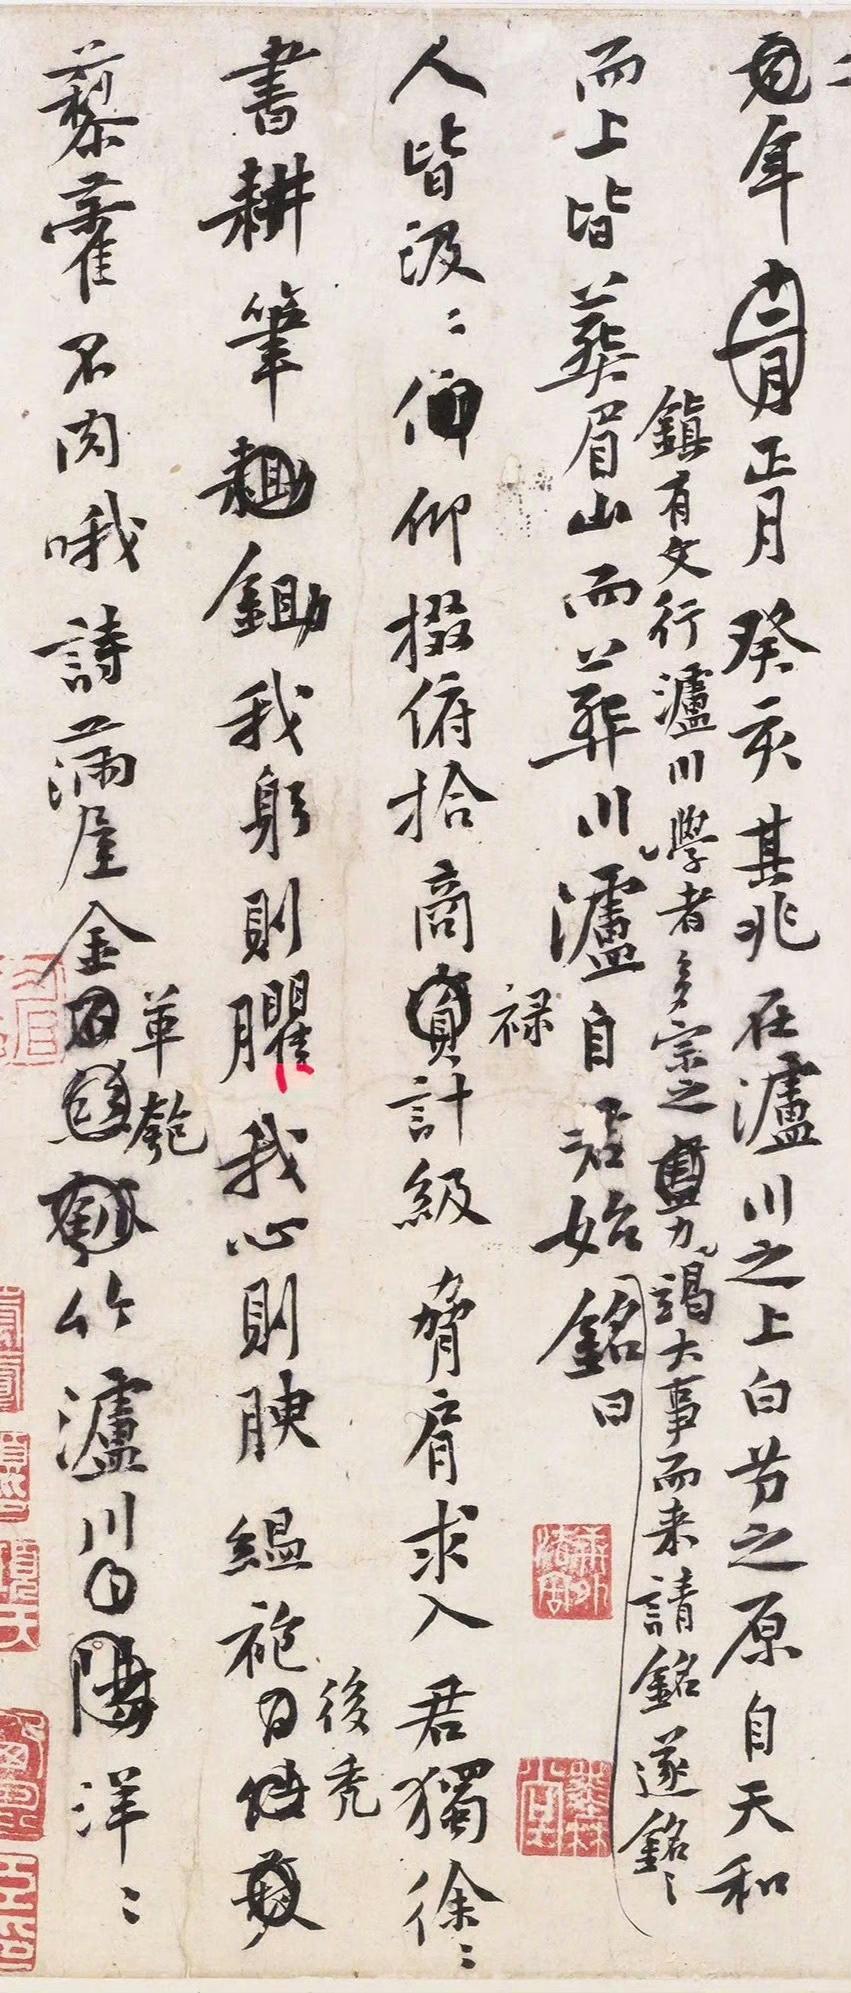 年十二月正月癸亥其兆在瀘川之上白芀之原自天和
鎮有文行瀘川學者多宗之力竭大事而来請銘遂銘〻
而上皆葬眉山而葬川瀘自君始銘曰
人皆汲〻仰掇俯拾商計級脅肩求入君獨徐〻
禄
書耕筆耡我躬則臞我心則腴緼袍
後禿
藜藿不肉哦詩滿屋金竹瀘川洋〻
革匏